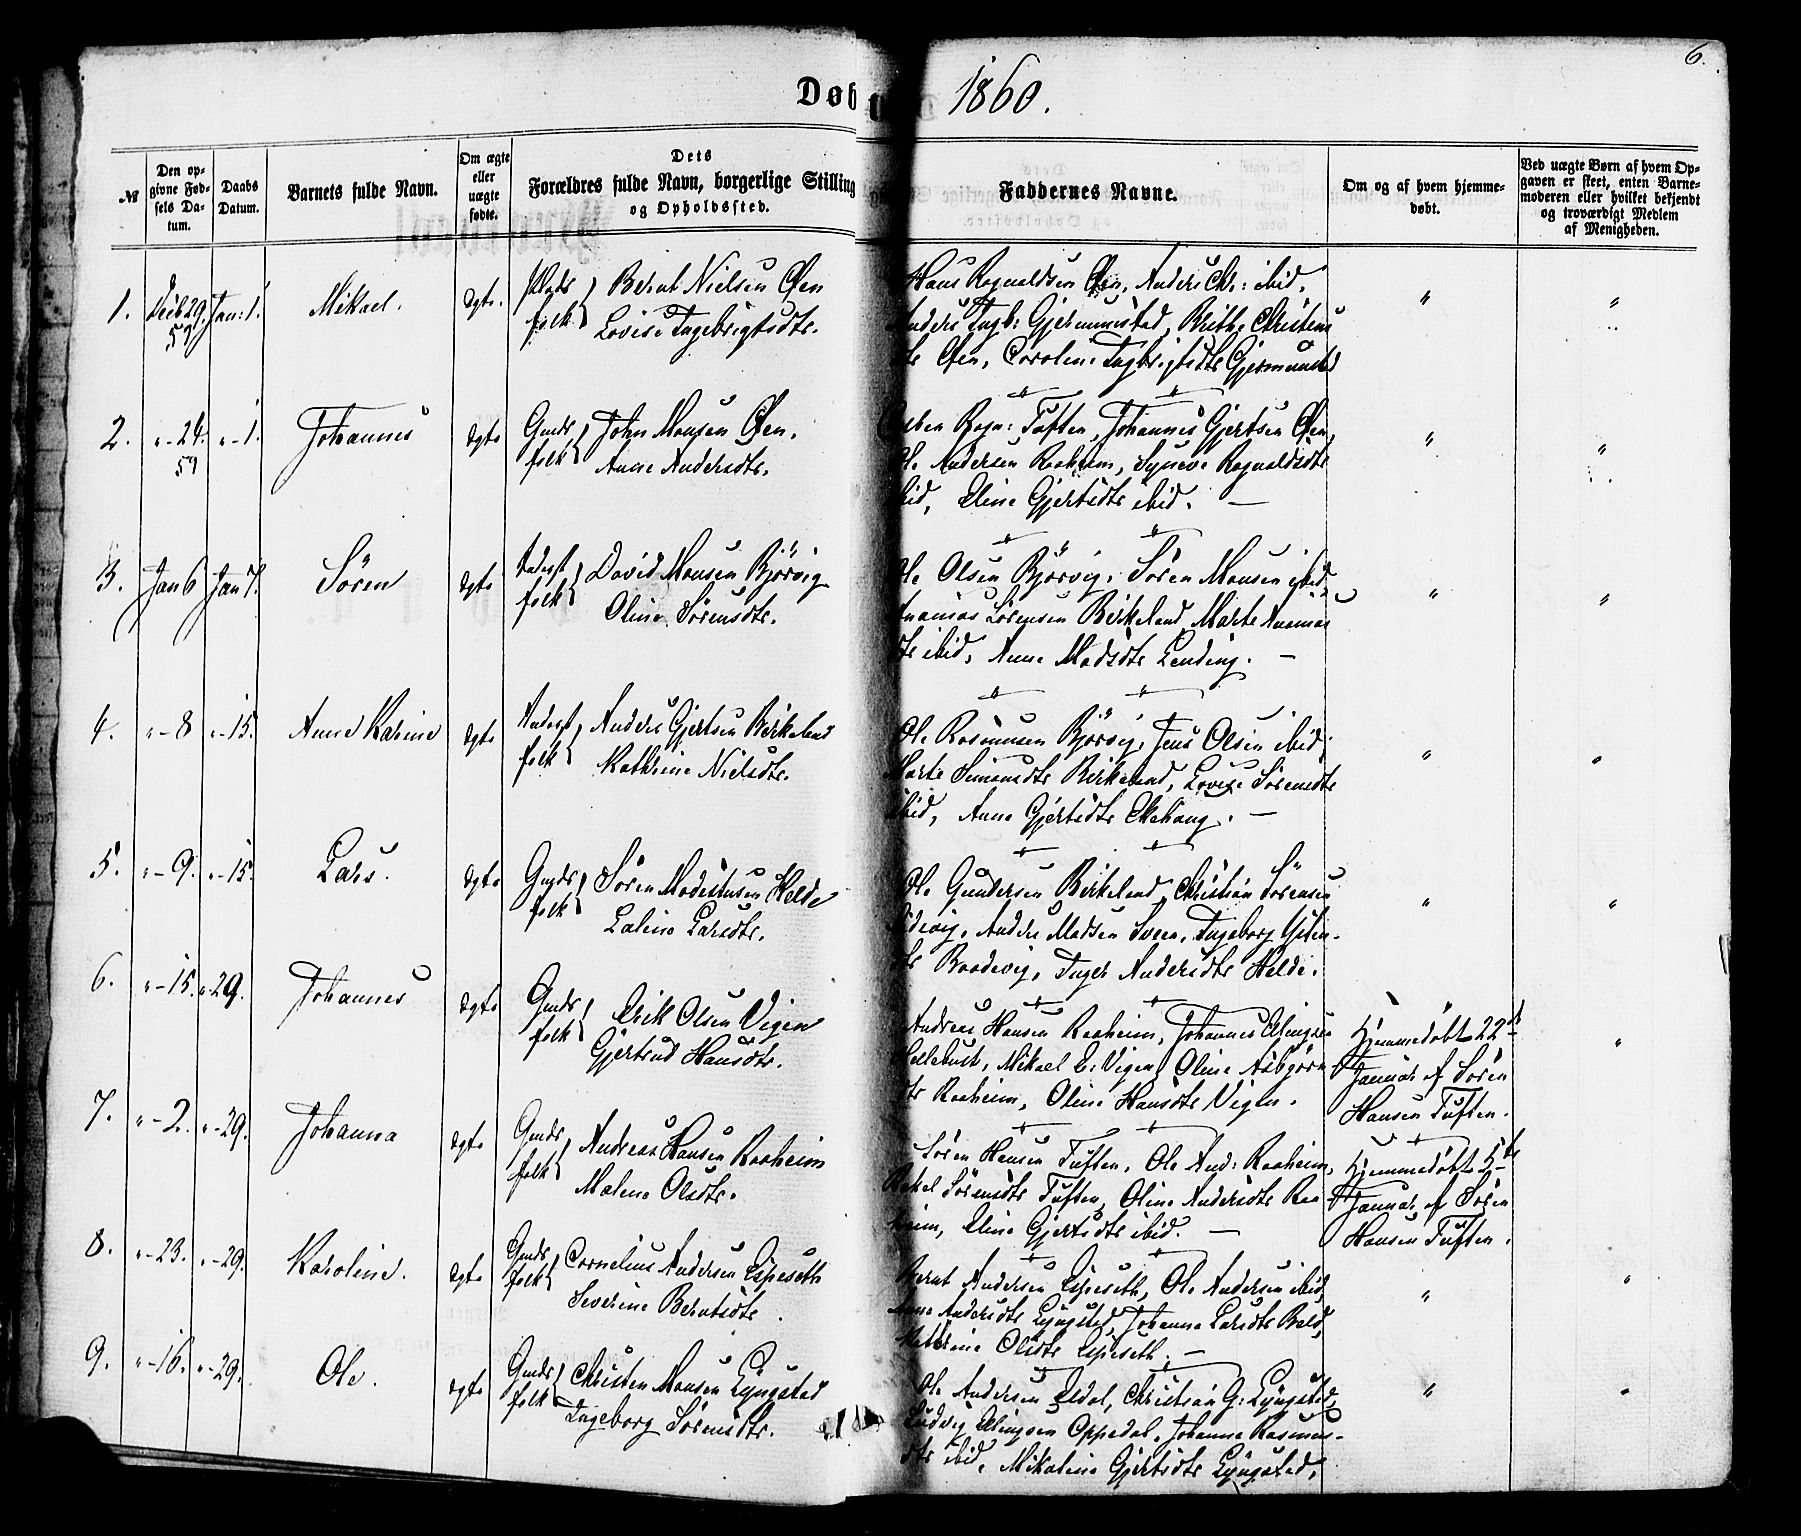 6.
Døb 1860.
№
Den op-
givne Fød-
sels Da-
tum.
Daabs
Datum.
Barnets fulde Navn.
Om ægte
eller
uægte
fødte.
Dets
Forældres fulde Navn, borgerlige Stilling
og Opholdssted.
Faddernes Navne.
Om og af hvem hjemme-
døbt.
Ved uægte Børn af hvem Op-
gaven er skeet, enten Barne-
moderen eller hvilket bekjendt
og troværdigt Medlem
af Menigheden.
1. 29 59 Jan: 1. Mikael. ægte.
folk Bernt Nielsen Øen
Lovise Ingebrigtsdtr.
Hans Ragnaldsen Øen, Anders Chr: ibid,
Anders Ingb: Gjermunstad, Brithe Christens
dtr Øen, Caroline Ingbrigtsdtr Gjermundstad
2. "-24. 59 "-1. Johannes ægte
Gmds folk John Monsen Øen.
Anne Andersdtr.
Ragn: Tuften, Johannes Gjertsen Øen,
Ole Andersen Raaheim, Synève Ragnaldsdtr
ibid, Eline Gjertsdtr ibid. —
3. Jan 6 Jan 7. Sören ægte
folk David Monsen Björvig
Oline Sörensdtr.
Ole Olsen Björvig, Sören Monsen ibid,
Ananias Sörensen Birkeland, Marte Ananias
dtr ibid, Anne Madsdtr Lending. —
4. "-8 "-15. Anne Karine ægte
folk Anders Gjertsen Birkeland
Kathrine Nielsdtr.
Ole Rasmusen Björvig, Jens Olsen ibid,
Marte Simonsdtr Birkeland, Lovise Sörensdtr
ibid, Anne Gjertsdtr Ekehaug. —
5. "-9. "-15. Lars. ægte
Gmds folk Sören Modestusen Helde
Larsdtr.
Ole Gundersen Birkeland, Christian Sörensen
Anders Madsen Sveen, Ingeborg
dtr Baadevig, Inger Andersdtr Helde.
6. "-15. "-29. Johannes ægte
Gmds folk Erik Olsen Vigen
Gjertrud Hansdtr.
Andreas Hansen Raaheim, Johannes Elingsen
Hellebust, Mikael E: Vigen, Oline Asbjörns
dtr Raaheim, Oline Hansdtr Vigen.
Hjemmedöbt 22de
Januar af Sören
Hansen Tuften.
7. "-2. "-29. Johanna ægte
Gmds folk Andreas Hansen Raaheim
Malene Olsdtr.
Sören Hansen Tuften, Ole And: Raaheim,
Rakel Sörensdtr Tuften, Oline Andersdtr Raa
heim, Eline Gjertsdtr ibid. —
Hjemmedöbt 5te
Januar af Sören
Hansen Tuften.
8. "-23. "-29. Karoline. ægte
Gmds folk Cornelius Andersen Espeseth
Severine Berntsdtr.
Bernt Andersen Espeseth, Ole Andersen ibid,
Anne Andersdtr Lyngstad, Johanne Larsdtr Bald,
Kathrine Olsdtr Espeseth. —
9. "-16. "-29. Ole. ægte
Gmds folk Christen Monsen Lyngstad
Ingeborg Sörensdtr.
Ole Andersen Eldal, Christian G: Lyngstad,
Ludvig Elingsen Oppedal, Johanne Rasmus-
dtr ibid, Mikaline Gjertsdtr Lyngstad,